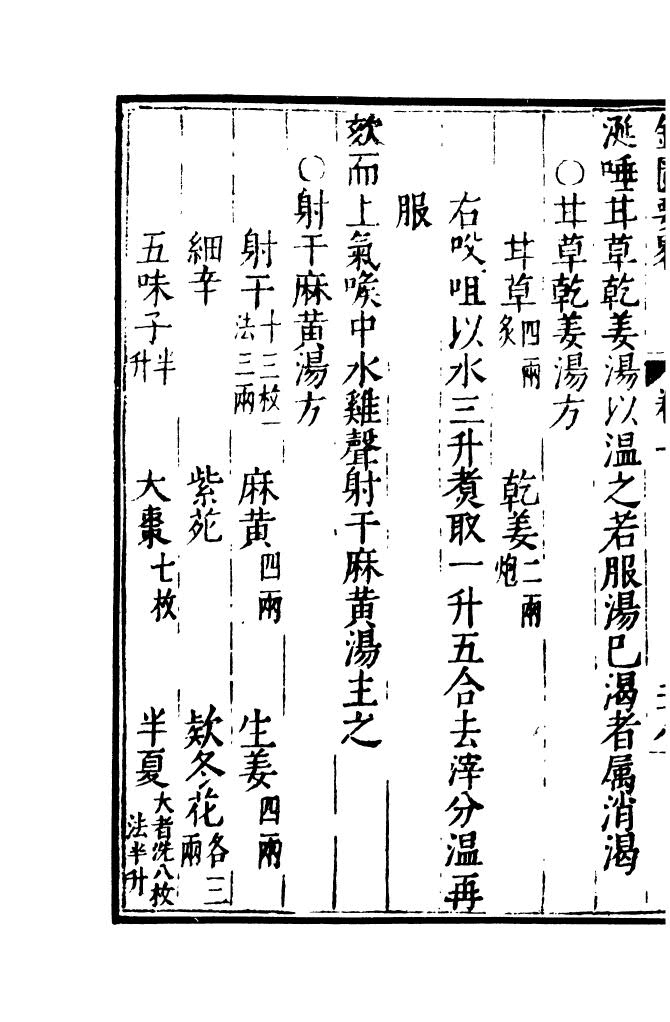 涎唾甘草乾姜湯以温之若服湯已渴者属消渴
○甘草乾姜湯方
甘草四兩炙　乾姜二兩炮
右㕮咀以水三升煑取一升五合去滓分温再
服
欬而上氣喉中水雞聲射干麻黄湯主之
○射干麻黄湯方
射干十三枚一法三兩　麻黄四兩　生姜四兩
細辛　紫苑　欵冬花各三兩
五味子半升　大棗七枚　半夏大者洗八枚法半升